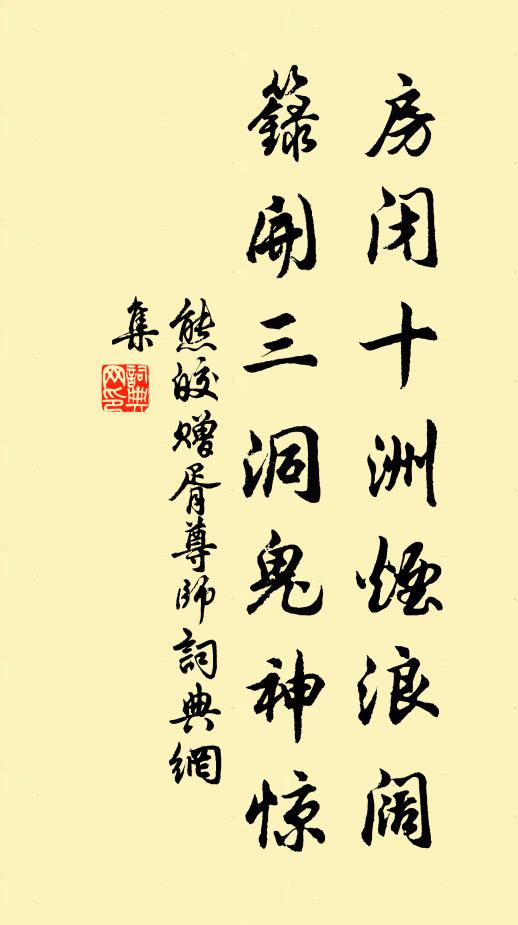 房闭十洲煙浪阔
籙開三洞鬼神惊
熊皎赠胥尊師詞典網
集
詞典网印